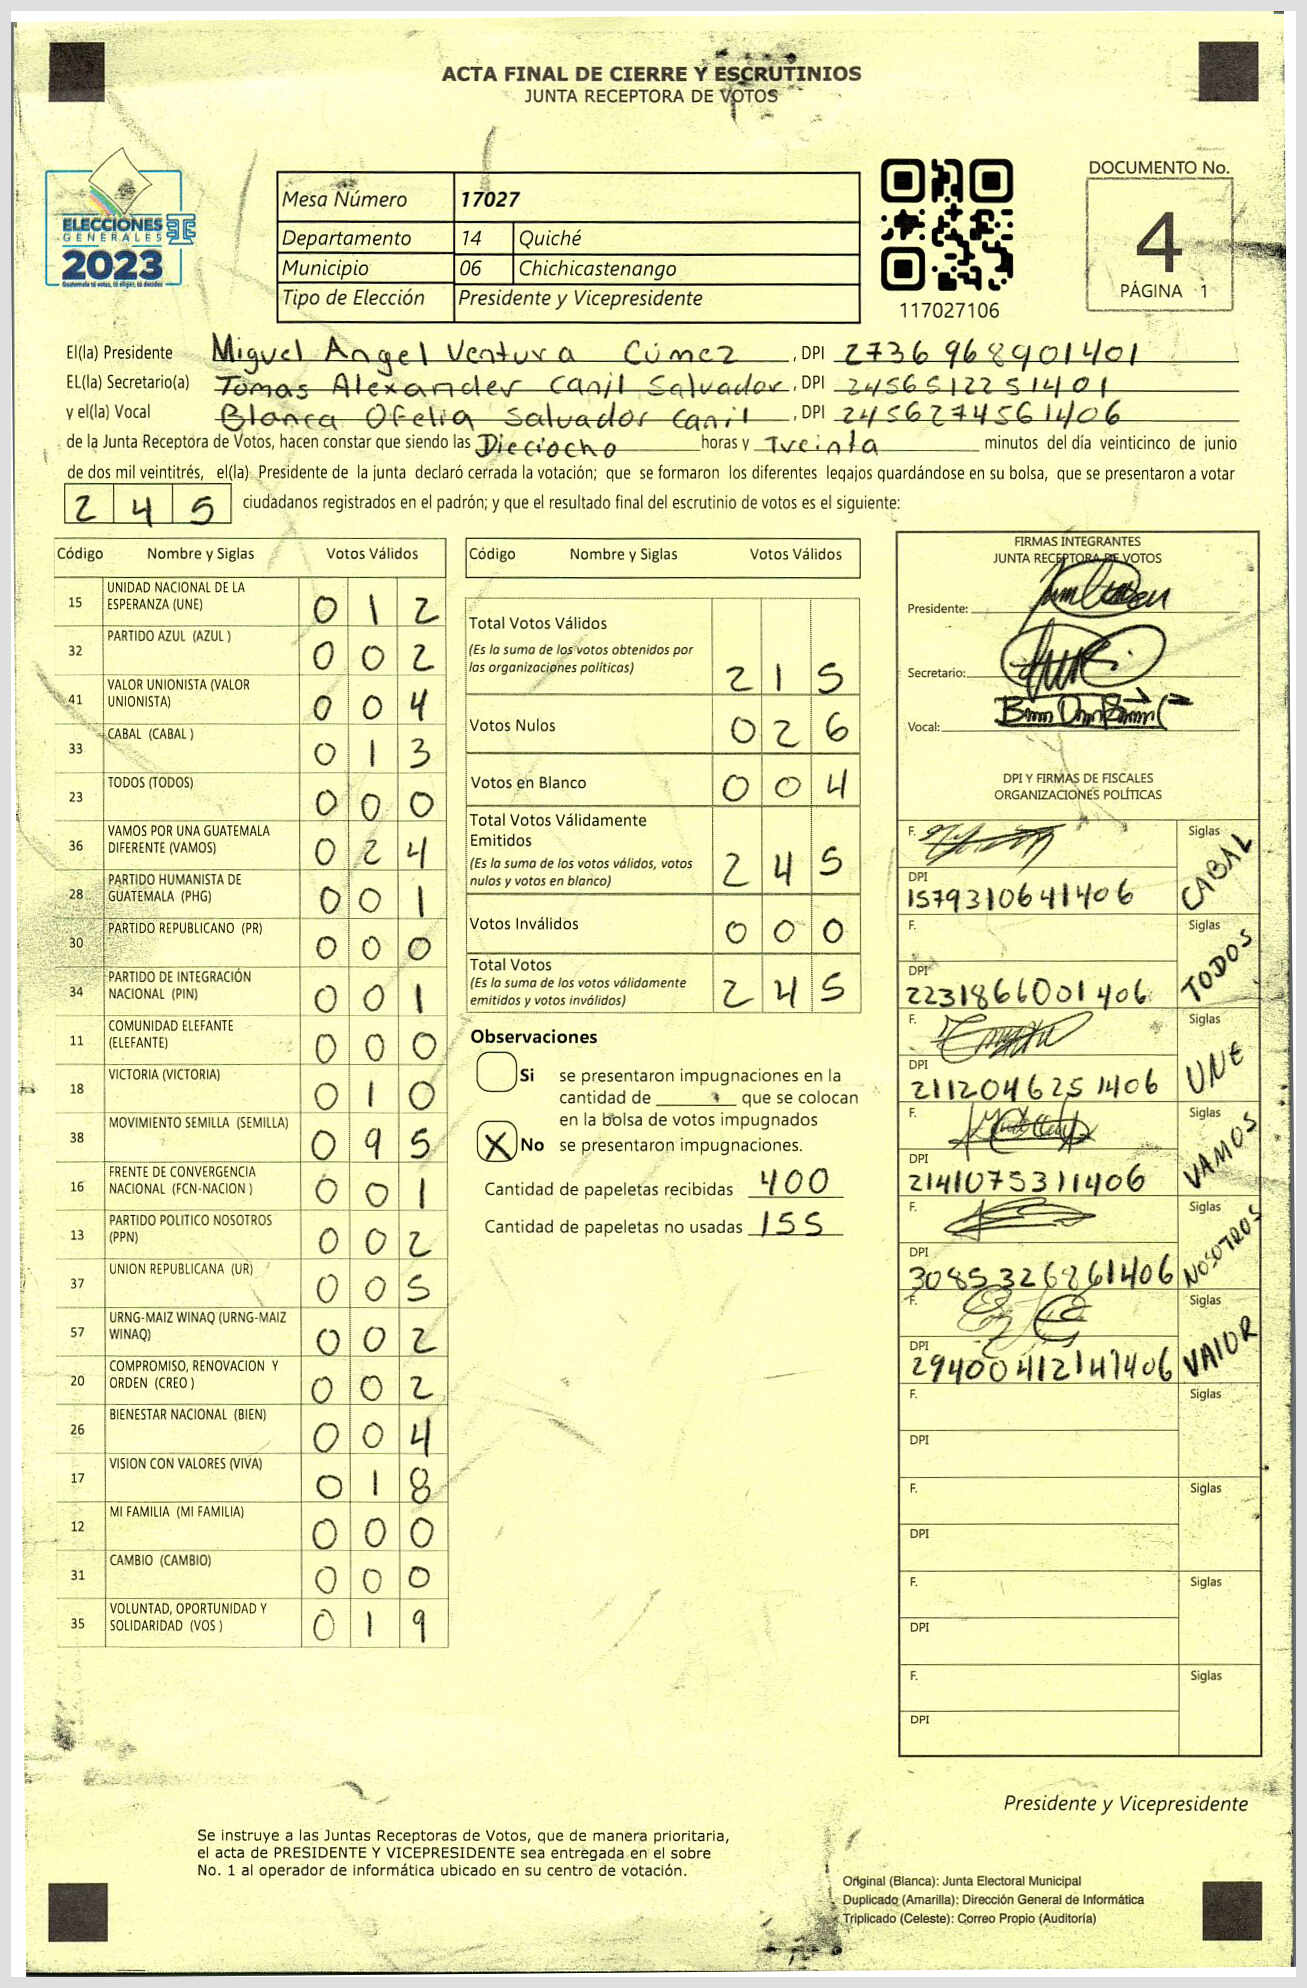 ACTA FINAL DE CIERRE Y ESCRUTINIOS
JUNTA RECEPTORA DE VOTOS
ELECCIONES
GENERALES
2023
Mesa Número 17027
Departamento 14 Quiché
Municipio 06 Chichicastenango
Tipo de Elección Presidente y Vicepresidente
117027106
DOCUMENTO No.
4
PÁGINA 1
El(la) Presidente Miguel Angel Ventura Cúmez, DPI 2736968901401
EL(la) Secretario(a) Tomas Alexander Canil Salvador, DPI 2456512251401
y el(la) Vocal Blanca Ofelia Salvador Canil, DPI 2456274561406
de la Junta Receptora de Votos, hacen constar que siendo las Dieciocho horas y Treinta minutos del día veinticinco de junio
de dos mil veintitrés, el(la) Presidente de la junta declaró cerrada la votación; que se formaron los diferentes legajos guardándose en su bolsa, que se presentaron a votar
245 ciudadanos registrados en el padrón; y que el resultado final del escrutinio de votos es el siguiente:
Código Nombre y Siglas Votos Válidos
15 UNIDAD NACIONAL DE LA ESPERANZA (UNE) 012
32 PARTIDO AZUL (AZUL ) 002
41 VALOR UNIONISTA (VALOR UNIONISTA) 004
33 CABAL (CABAL ) 013
23 TODOS (TODOS) 000
36 VAMOS POR UNA GUATEMALA DIFERENTE (VAMOS) 024
28 PARTIDO HUMANISTA DE GUATEMALA (PHG) 001
30 PARTIDO REPUBLICANO (PR) 000
34 PARTIDO DE INTEGRACIÓN NACIONAL (PIN) 001
11 COMUNIDAD ELEFANTE (ELEFANTE) 000
18 VICTORIA (VICTORIA) 010
38 MOVIMIENTO SEMILLA (SEMILLA) 095
16 FRENTE DE CONVERGENCIA NACIONAL (FCN-NACION ) 001
13 PARTIDO POLITICO NOSOTROS (PPN) 002
37 UNION REPUBLICANA (UR) 005
57 URNG-MAIZ WINAQ (URNG-MAIZ WINAQ) 002
20 COMPROMISO, RENOVACION Y ORDEN (CREO ) 002
26 BIENESTAR NACIONAL (BIEN) 004
17 VISION CON VALORES (VIVA) 018
12 MI FAMILIA (MI FAMILIA) 000
31 CAMBIO (CAMBIO) 000
35 VOLUNTAD, OPORTUNIDAD Y SOLIDARIDAD (VOS ) 019
Código Nombre y Siglas Votos Válidos
Total Votos Válidos
(Es la suma de los votos obtenidos por
las organizaciones políticas) 215
Votos Nulos 026
Votos en Blanco 004
Total Votos Válidamente
Emitidos
(Es la suma de los votos válidos, votos
nulos y votos en blanco) 245
Votos Inválidos 000
Total Votos
(Es la suma de los votos válidamente
emitidos y votos inválidos) 245
Observaciones
Si se presentaron impugnaciones en la
cantidad de ________ que se colocan
en la bolsa de votos impugnados
X No se presentaron impugnaciones.
Cantidad de papeletas recibidas 400
Cantidad de papeletas no usadas 155
FIRMAS INTEGRANTES
JUNTA RECEPTORA DE VOTOS
Presidente:
Secretario:
Vocal:
DPI Y FIRMAS DE FISCALES
ORGANIZACIONES POLÍTICAS
F. Siglas CABAL
DPI
1579310641406
F. Siglas TODOS
DPI
2231866001406
F. Siglas UNE
DPI
2112046251406
F. Siglas VAMOS
DPI
2141075311406
F. Siglas NOSOTROS
DPI
3085326861406
F. Siglas VALOR
DPI
F. Siglas
DPI
F. Siglas
DPI
F. Siglas
DPI
F. Siglas
DPI
Presidente y Vicepresidente
Se instruye a las Juntas Receptoras de Votos, que de manera prioritaria,
el acta de PRESIDENTE Y VICEPRESIDENTE sea entregada en el sobre
No. 1 al operador de informática ubicado en su centro de votación.
Original (Blanca): Junta Electoral Municipal
Duplicado (Amarilla): Dirección General de Informática
Triplicado (Celeste): Correo Propio (Auditoría)